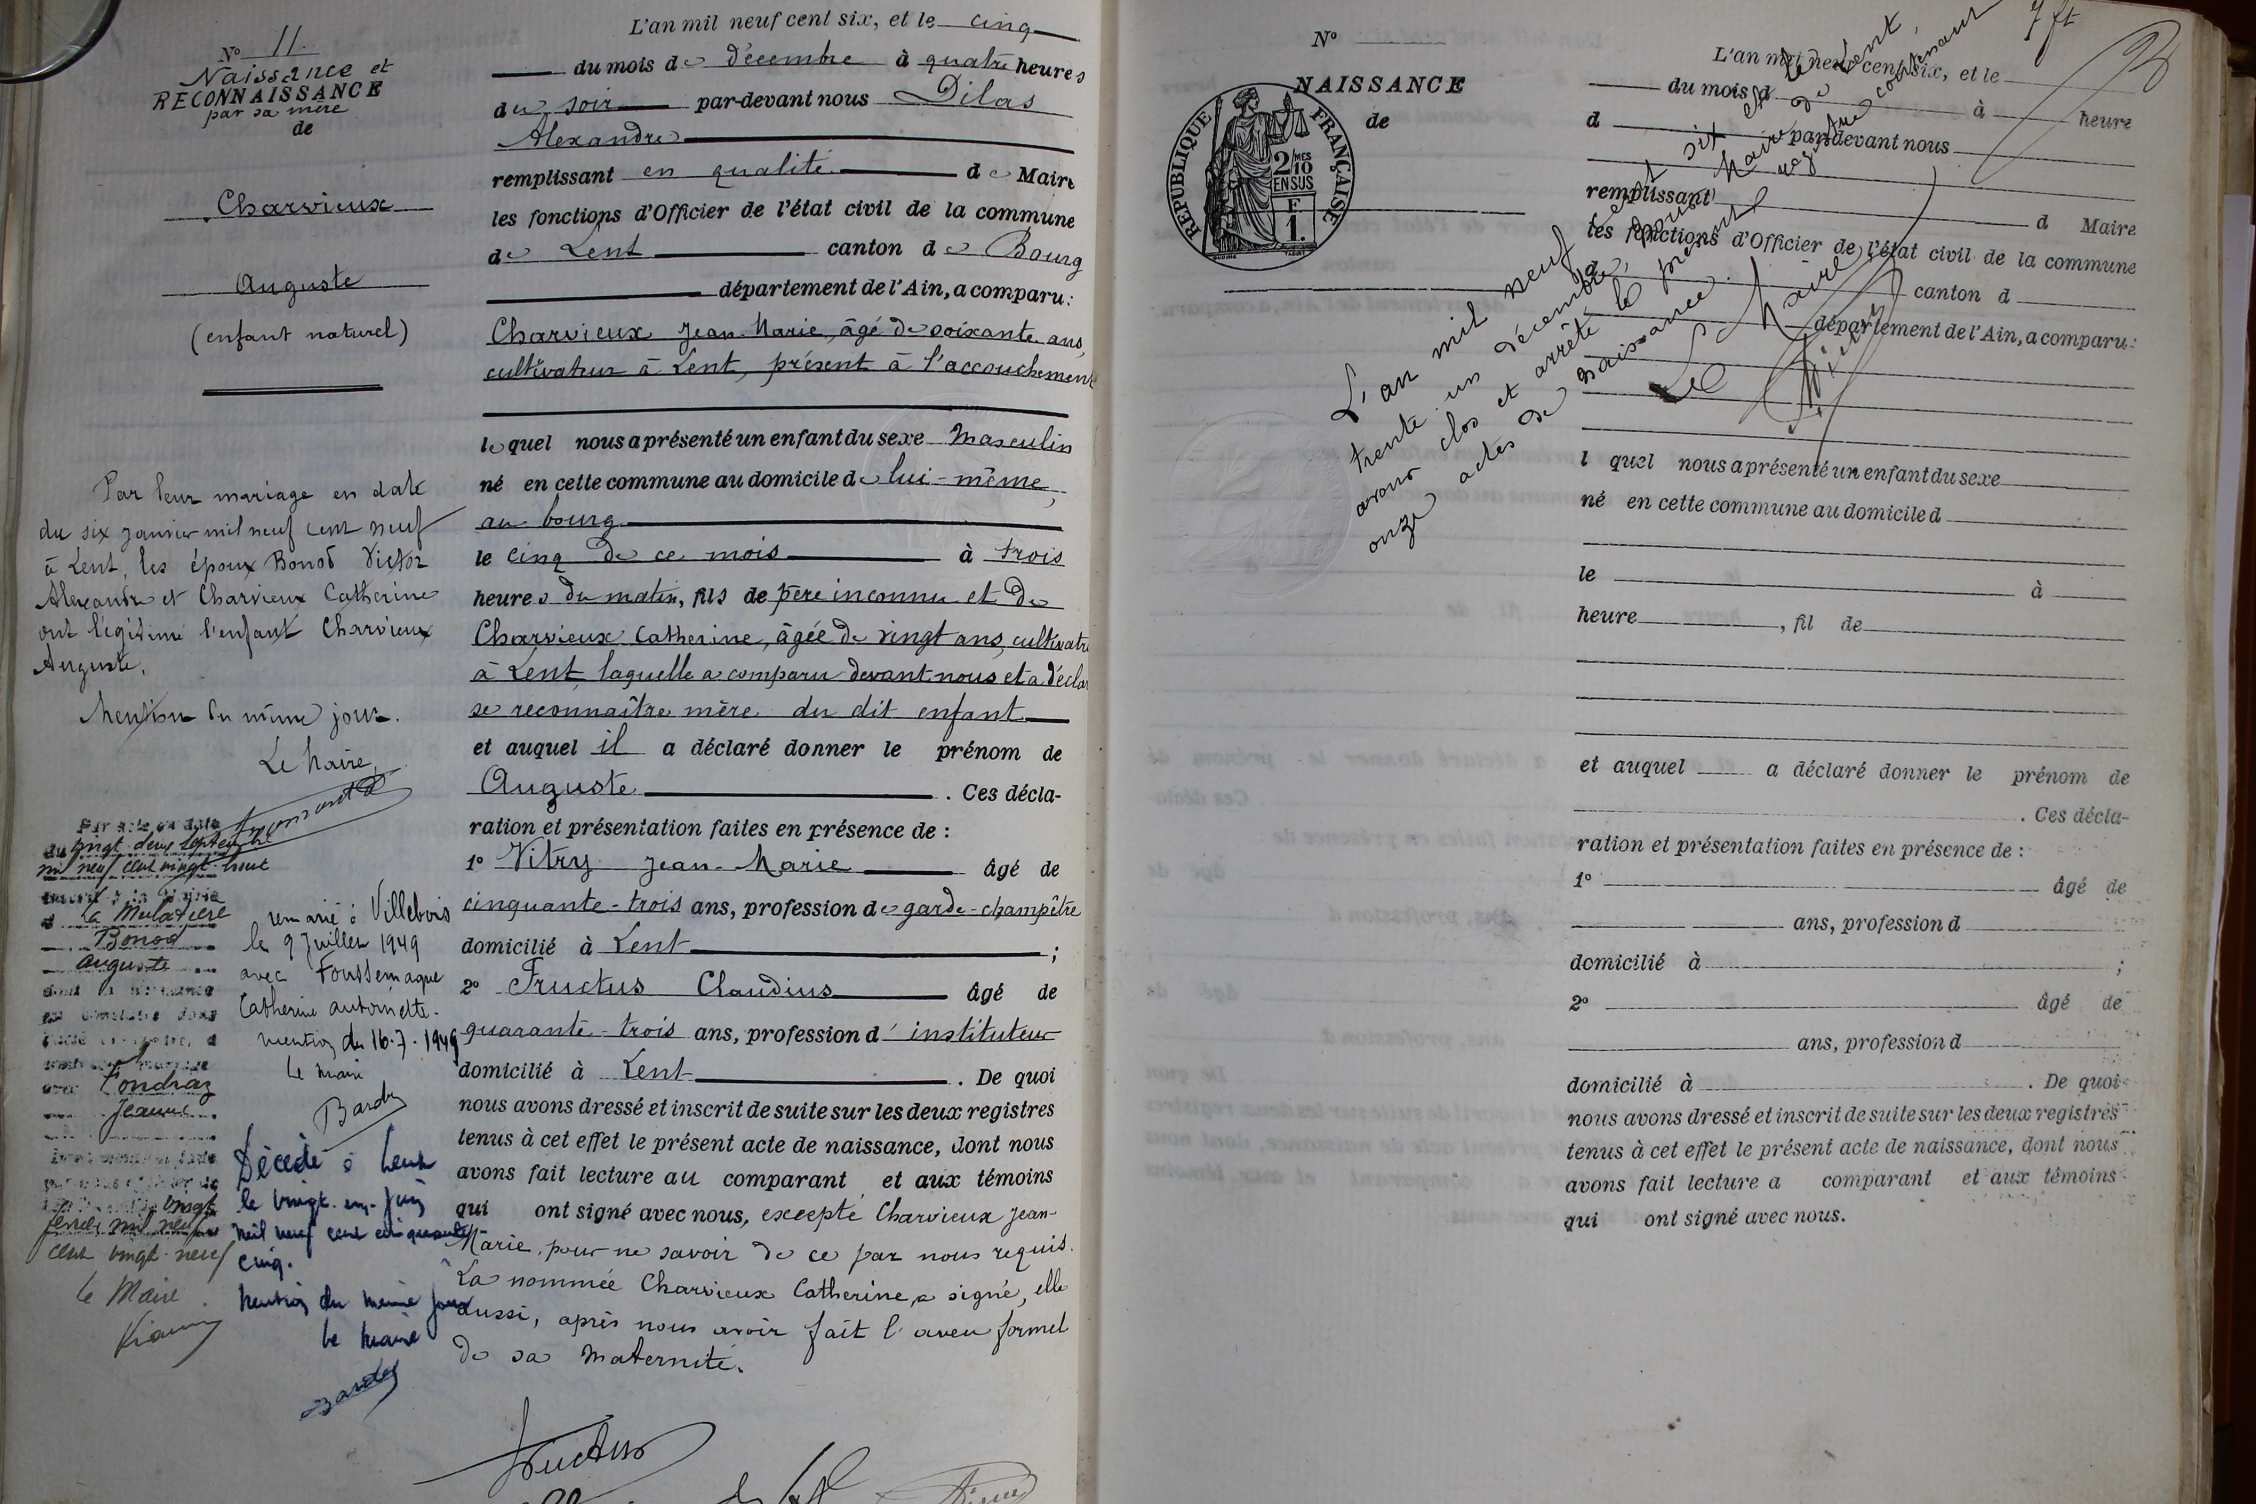 N° 11.
Naissance et
RECONNAISSANCE
par sa mère
de
Charvieux
Auguste
(enfant naturel)
Par leur mariage en date
du six janvier mil neuf cent neuf
à Lent, les époux Bonod Victor
Alexandre et Charvieux Catherine
ont légitimé l'enfant Charvieux
Auguste.
Mention du même jour.
Le Maire,
Par acte en date
du vingt deux septembre
mil neuf cent vingt huit
inscrit à la mairie
d La Mulatière
Bonod
Auguste
dont la naissance
est constatée dans
avec Fondraz
Jeanne
vingt
février mil neuf
cent vingt-neuf
le Maire
remarié à Villebois
le 9 Juillet 1949
avec Foussemagne
Catherine antoinette.
mention du 16.7.1949
le maire
Bardy
Décédé à Lent
le vingt-un juin
mil neuf cent cinquante
cinq.
Mention du même jour
le maire
Bardy
L'an mil neuf cent six, et le cinq
du mois de décembre à quatre heures
du soir par-devant nous Dilas
Alexandre
remplissant en qualité de Maire
les fonctions d'Officier de l'état civil de la commune
de Lent canton de Bourg
département de l'Ain, a comparu:
Charvieux Jean-Marie, âgé de soixante ans,
cultivateur à Lent, présent à l'accouchement
lequel nous a présenté un enfant du sexe masculin
né en cette commune au domicile de lui-même,
au bourg
le cinq de ce mois à trois
heures du matin, fils de père inconnu et de
Charvieux Catherine, âgée de vingt ans, cultivatri
à Lent laquelle a comparu devant nous et a décla
se reconnaître mère du dit enfant
et auquel il a déclaré donner le prénom de
Auguste. Ces décla-
ration et présentation faites en présence de :
1° Vitry Jean-Marie âgé de
cinquante-trois ans, profession de garde-champêtre
domicilié à Lent ;
2° Fructus Claudius âgé de
quarante-trois ans, profession d'instituteur
domicilié à Lent. De quoi
nous avons dressé et inscrit de suite sur les deux registres
tenus à cet effet le présent acte de naissance, dont nous
avons fait lecture au comparant et aux témoins
qui ont signé avec nous, excepté Charvieux Jean-
Marie, pour ne savoir de ce par nous requis.
La nommée Charvieux Catherine, a signé, elle
aussi, après nous avoir fait l'aveu formel
de sa maternité.
Fructus
N°
NAISSANCE
de
RÉPUBLIQUE FRANÇAISE
2/10 MES
EN SUS
F
1.
7 ft
L'an mil neuf cent six et le
trente un décembre, nous Maire de Lent,
avons clos et arrêté le présent registre contenant
onze actes de naissance.
Le Maire
L'an mil neuf cent six, et le
du mois d à heure
d par-devant nous
remplissant d Maire
les fonctions d'Officier de l'état civil de la commune
d canton d
département de l'Ain, a comparu:
l quel nous a présenté un enfant du sexe
né en cette commune au domicile d
le à
heure , fil de
et auquel a déclaré donner le prénom de
. Ces décla-
ration et présentation faites en présence de :
1° âgé de
ans, profession d
domicilié à ;
2° âgé de
ans, profession d
domicilié à . De quoi
nous avons dressé et inscrit de suite sur les deux registres
tenus à cet effet le présent acte de naissance, dont nous
avons fait lecture a comparant et aux témoins
qui ont signé avec nous.